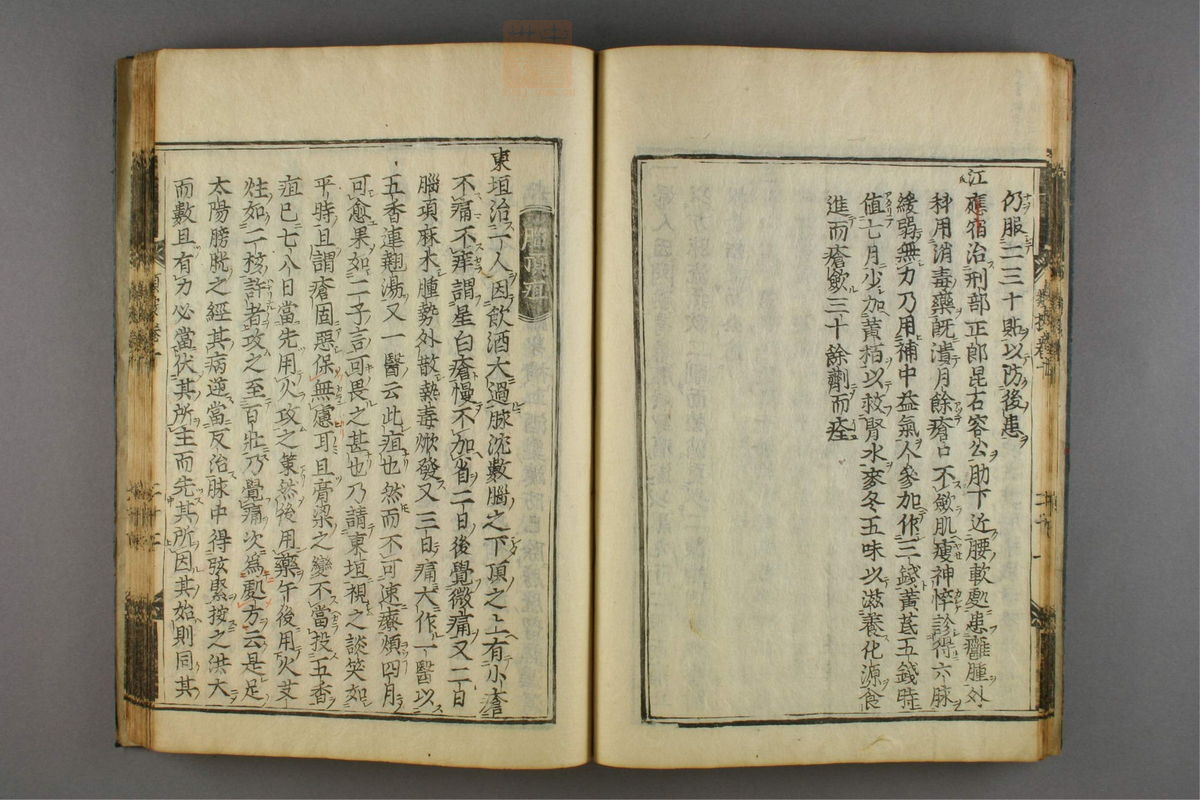 仍服二三十貼以防後患
江應宿治刑部正郎昆右容公肋下近腰軟處患癰腫外
科用消毒藥既潰月餘瘡口不斂肌瘦神悴診得六脉
緩弱無力乃用補中益氣人參加作三錢黃芪五錢時
值七月少加黃栢以救腎水麥冬五味以滋養化源食
進而瘡斂三十餘劑而痊
腦項疽
東垣治一人因飲酒太過脉沈數腦之下項之上有小瘡
不痛不痒謂是白瘡慢不加省二日後覺微痛又二日
腦項麻木腫勢外散熱毒焮發又三日痛大作一醫以
五香連翹湯又一醫云此疽也然而不可速療須四月
可愈果如二子言可畏之甚也乃請東垣視之談笑如
平時且謂瘡固惡保無慮耳且膏粱之變不當投五香
疽已七八日當先用火攻之策然後用藥午後用火艾
炷如二核許者攻之至百壯乃覺痛次爲處方云是足
太陽膀胱之經其病逆當反治脉中得弦緊按之洪大
而數且有力必當伏其所主而先其所因其始則同其